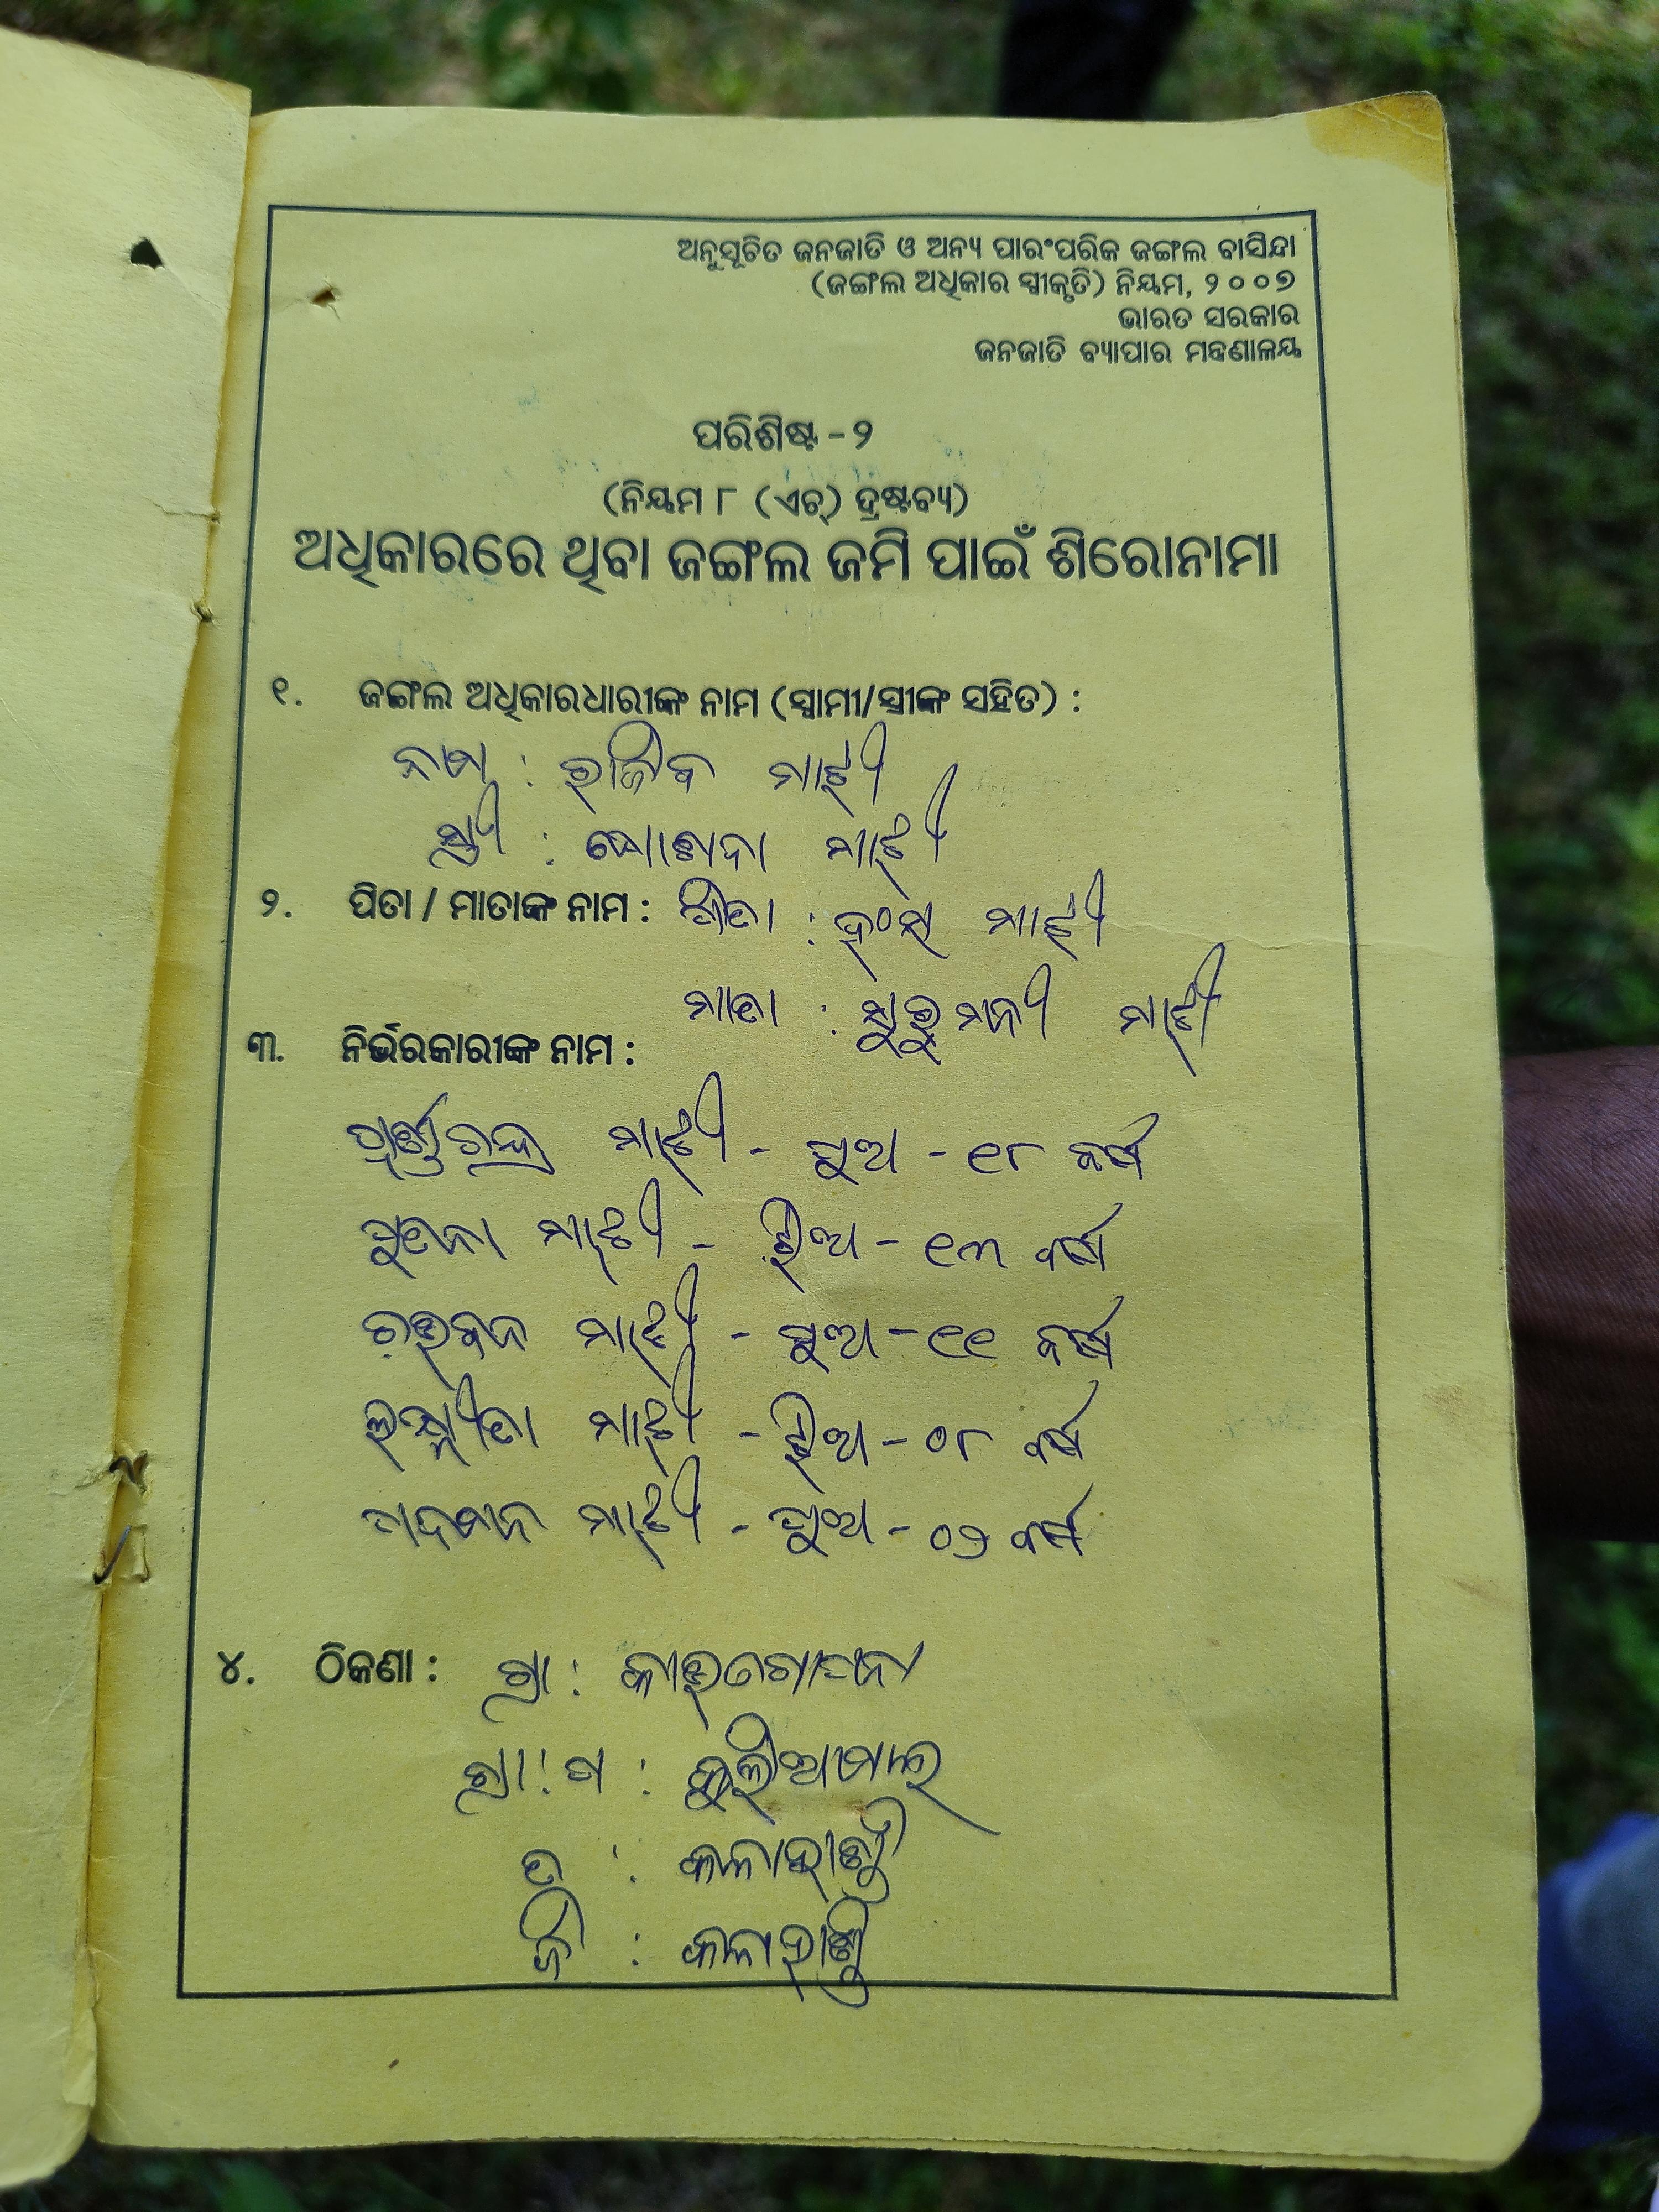 ଅନୁସୂଚିତ ଜନଜାତି ଓ ଅନ୍ୟ ପାରଂପରିକ ଜଙ୍ଗଲ ବାସିନ୍ଦା
(ଜଙ୍ଗଲ ଅଧିକାର ସ୍ୱୀକୃତି) ନିୟମ, ୨୦୦୭
ଭାରତ ସରକାର
ଜନଜାତି ବ୍ୟାପାର ମନ୍ତ୍ରଣାଳୟ
ପରିଶିଷ୍ଟ - ୨
(ନିୟମ ୮ (ଏଚ୍) ଦ୍ରଷ୍ଟବ୍ୟ)
ଅଧିକାରରେ ଥିବା ଜଙ୍ଗଲ ଜମି ପାଇଁ ଶିରୋନାମା
୧. ଜଙ୍ଗଲ ଅଧିକାରଧାରୀଙ୍କ ନାମ (ସ୍ୱାମୀ/ସ୍ତ୍ରୀଙ୍କ ସହିତ) :
ନାମ : ରାଜିବ ମାଝୀ
ସ୍ତ୍ରୀ : ମାଝୀ
୨. ପିତା / ମାତାଙ୍କ ନାମ : ପିତା : ହଂସ ମାଝୀ
ମାତା : ମାଝୀ
୩. ନିର୍ଭରକାରୀଙ୍କ ନାମ :
ପୂର୍ଣ୍ଣଚନ୍ଦ୍ର ମାଝୀ - ପୁଅ - ୧୮ ବର୍ଷ
ମାଝୀ - ଝିଅ - ୧୩ ବର୍ଷ
ମାଝୀ - ପୁଅ - ୧୧ ବର୍ଷ
ମାଝୀ - ଝିଅ - ୦୮ ବର୍ଷ
ମାଝୀ - ପୁଅ - ୦୬ ବର୍ଷ
୪. ଠିକଣା : ଗ୍ରା :
ଗ୍ରା : ପ :
ତ : କଳାହାଣ୍ଡି
ଜି : କଳାହାଣ୍ଡି